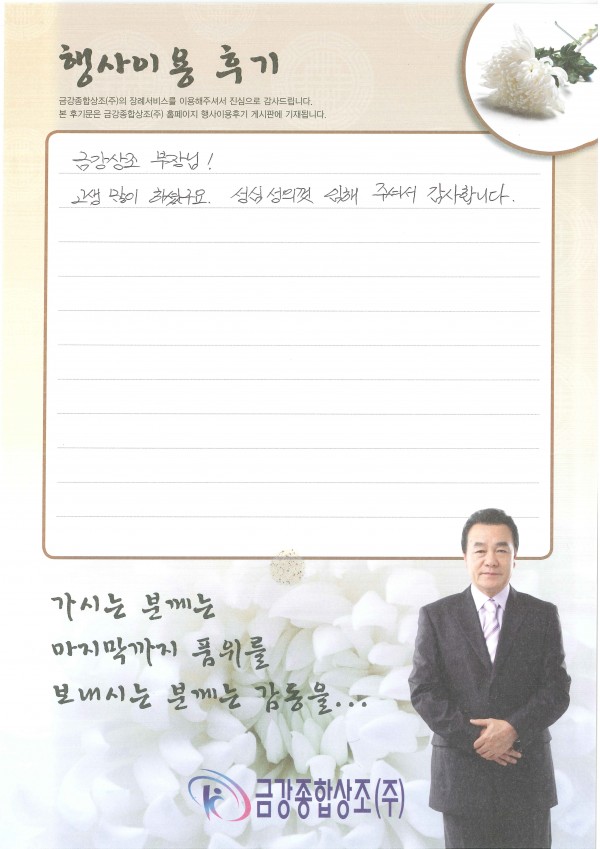 행사이용 후기
금강종합상조(주)의 장례서비스를 이용해주셔서 진심으로 감사드립니다.
본 후기문은 금강종합상조(주) 홈페이지 행사이용후기 게시판에 기재됩니다.
금강상조 부장님!
고생 많이 하셨구요. 성심성의껏 임해 주셔서 감사합니다.
가시는 분께는
마지막까지 품위를
보내시는 분께는 감동을...
금강종합상조(주)